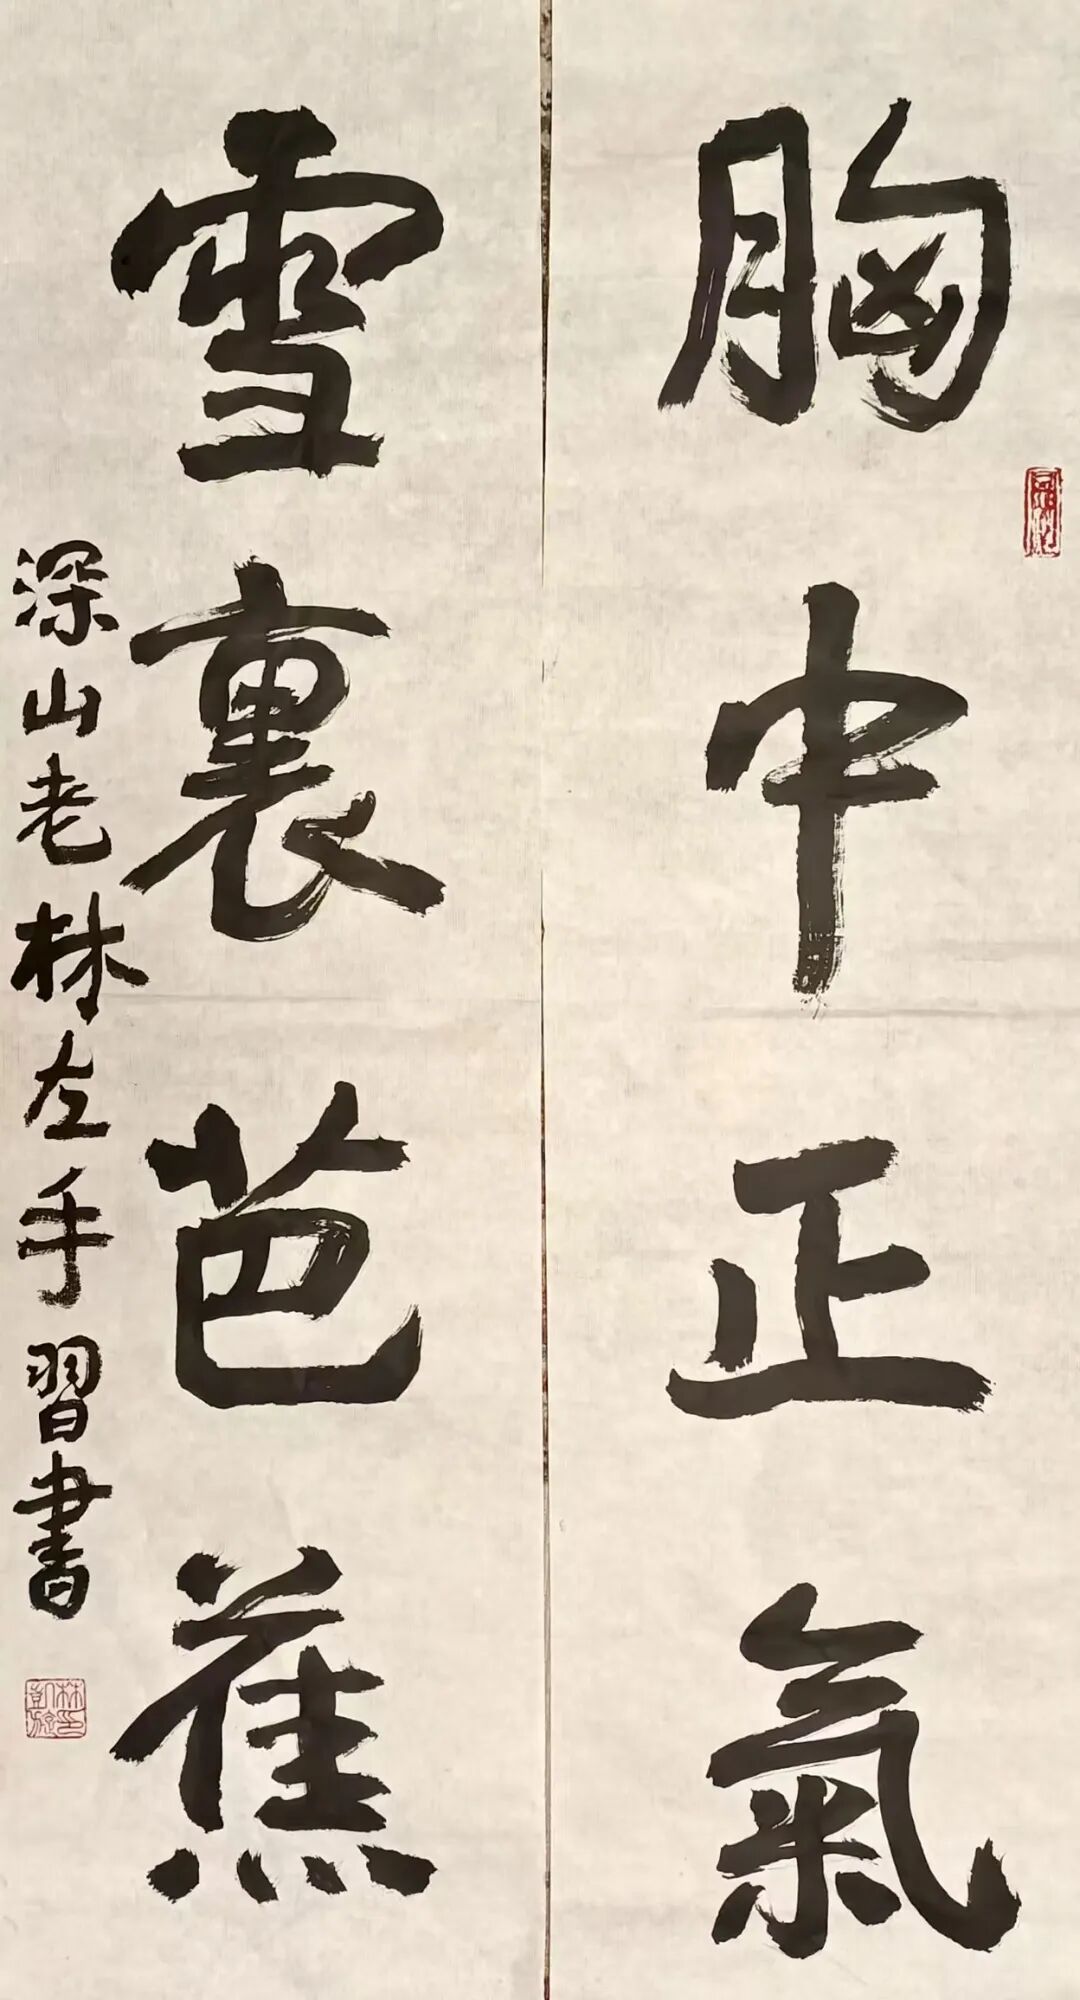 胸中正氣
雪裏芭蕉
深山老林左手習書